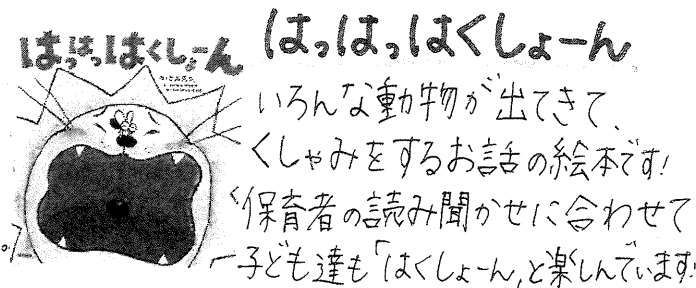 はっはっはくしょーん
はっはっはくしょーん
いろんな動物が出てきて、
くしゃみをするお話の絵本です!
保育者の読み聞かせに合わせて
子ども達も「はくしょーん」と楽しんでいます!